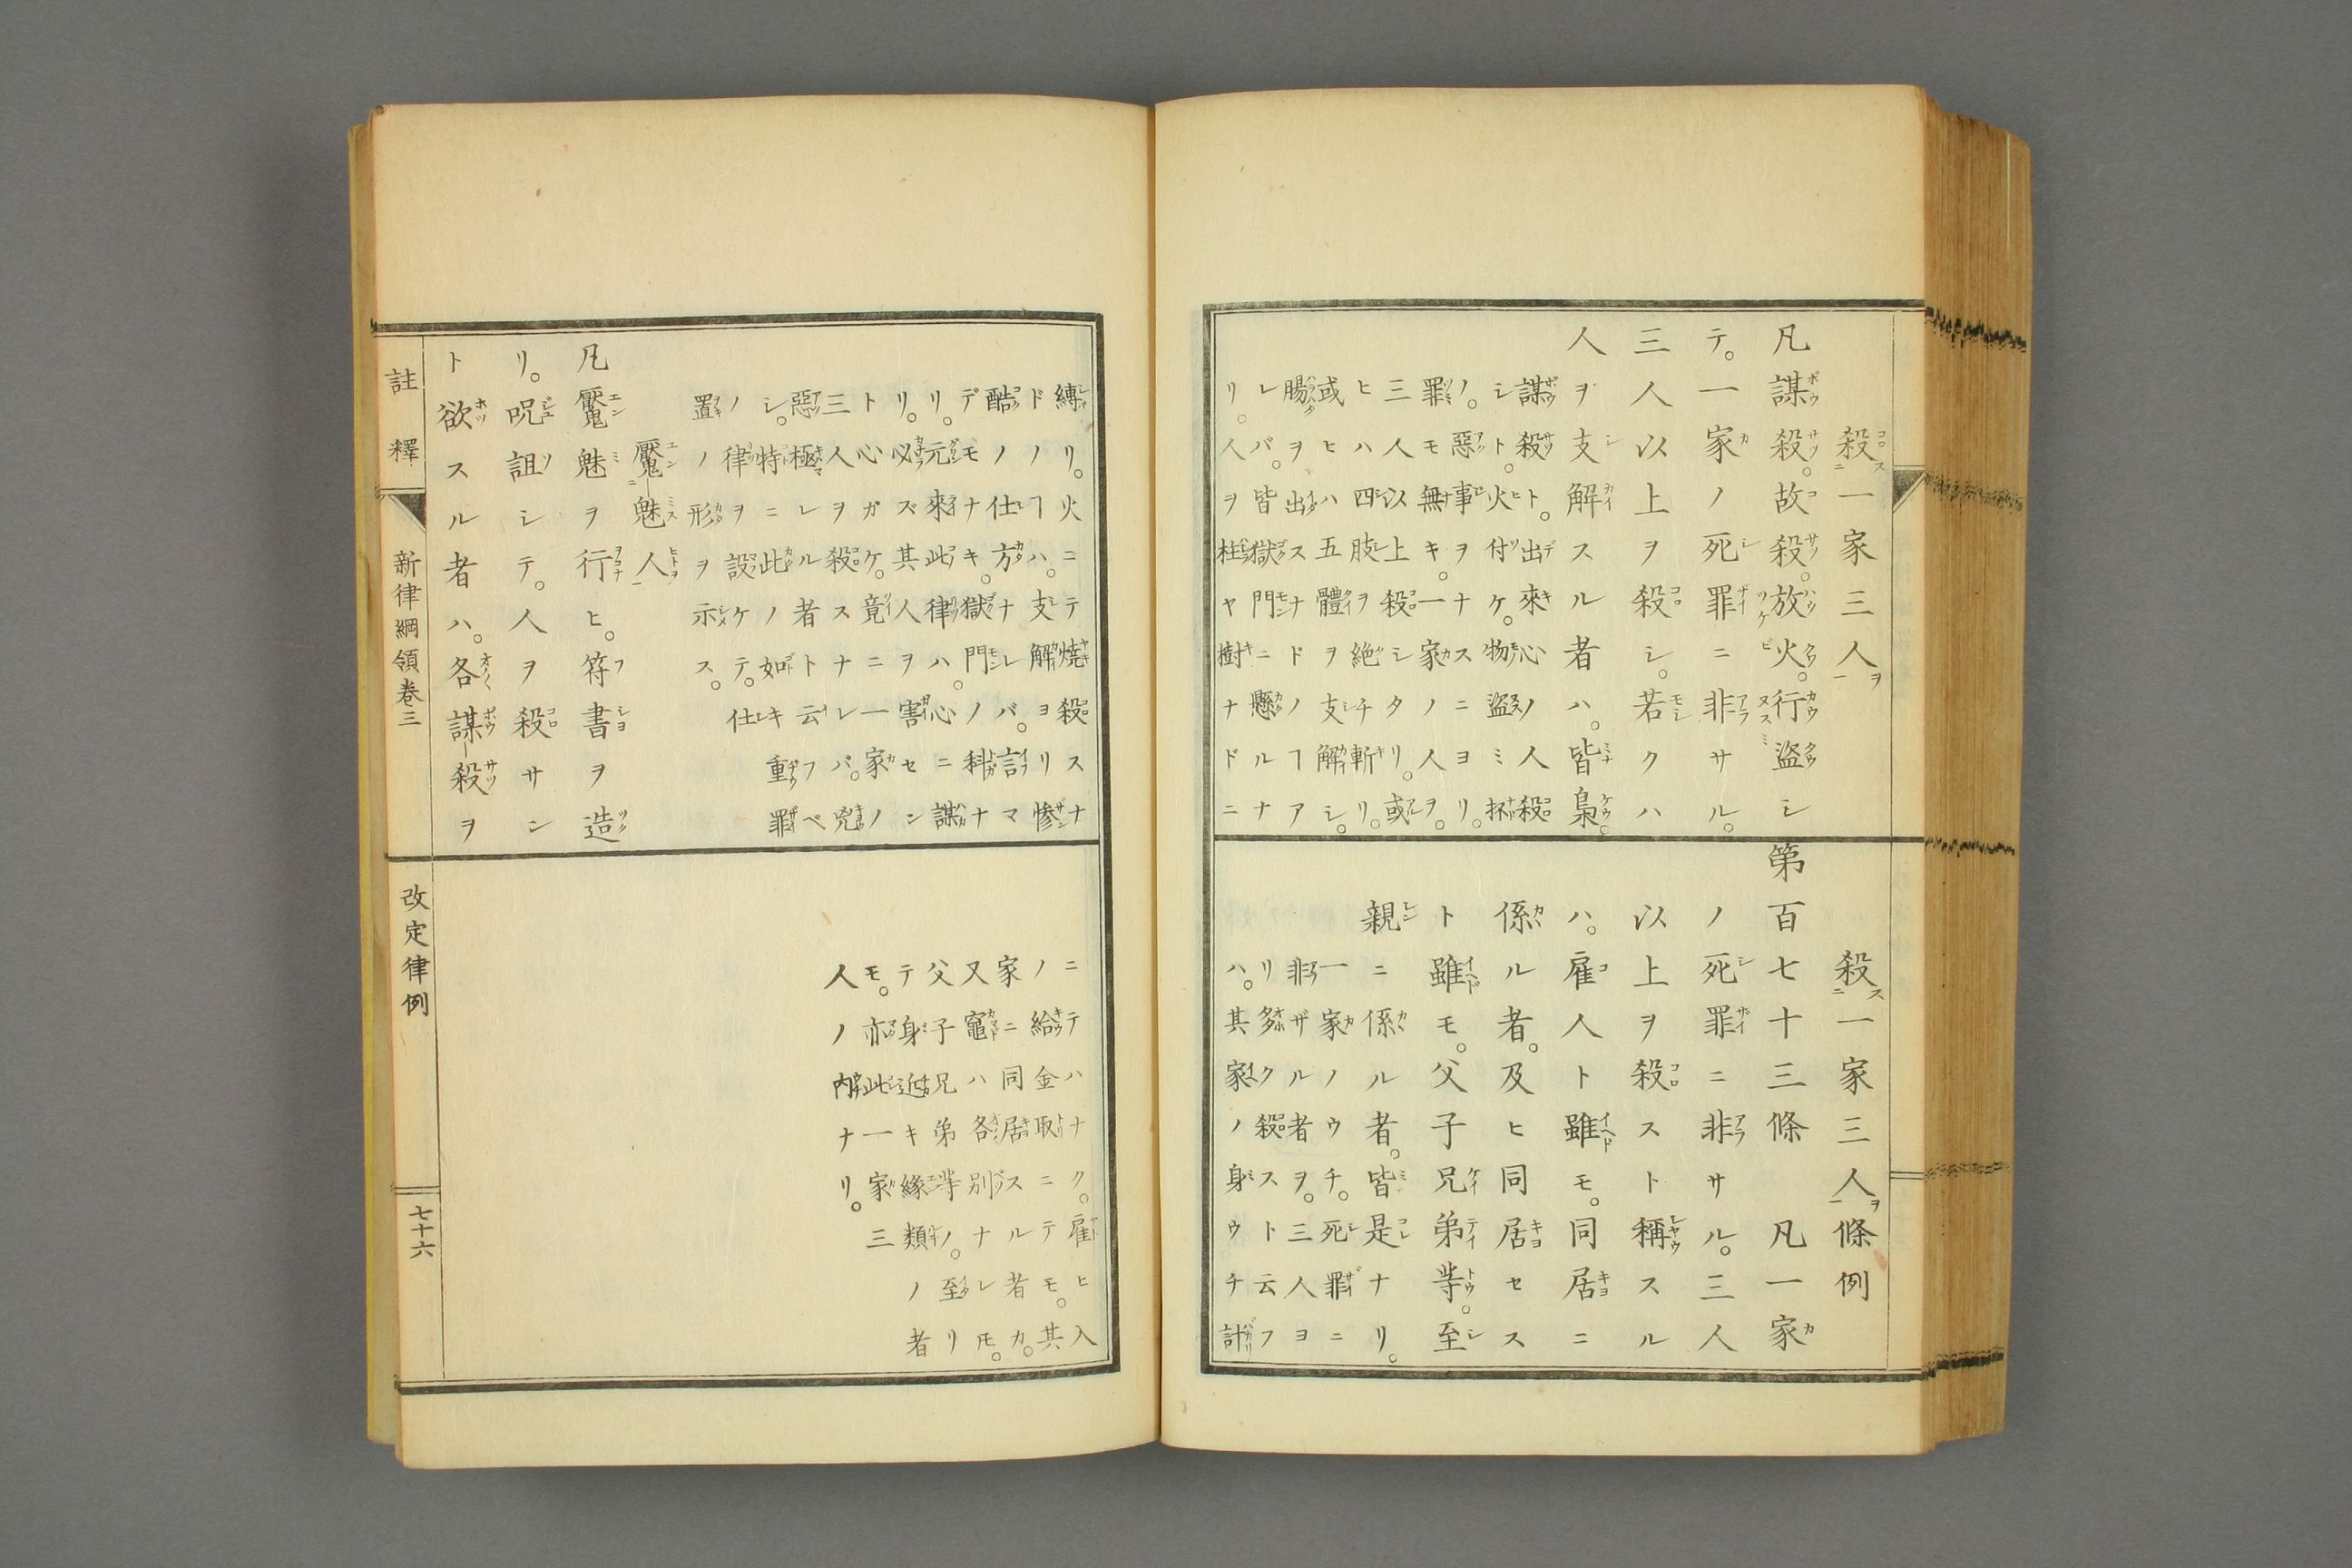 殺一家三人
凡謀殺。故殺。放火。行盜シ
テ。一家ノ死罪ニ非サル。
三人以上ヲ殺シ。若クハ
人ヲ支解スル者ハ。皆梟。
謀殺ト。出來心ノ人殺
シト。火付ケ。物盜ミ抔
ノ。惡事ヲナスニヨリ。
罪モ無キ。一家ノ人ヲ。
三人以上殺シタリ。或
ヒハ四肢ヲ絶チ斬リ。
或ヒハ五體ヲ支解シ。
腸ヲ出スナドノヿア
レバ。皆獄門ニ懸ルナ
リ。人ヲ柱ヤ樹ナドニ
殺一家三人條例
第百七十三條 凡一家
ノ死罪ニ非サル。三人
以上ヲ殺スト稱スル
ハ。雇人ト雖モ。同居ニ
係ル者。及ヒ同居セス
ト雖モ。父子兄弟等。至
親ニ係ル者。皆是ナリ。
一家ノウチ。死罪ニ
非ザル者ヲ。三人ヨ
リ多ク殺スト云フ
ハ。其家ノ身ウチ計
縛リ。火ニテ燒殺スナ
ドノヿハ。支解ヨリ慘
酷ノ仕方ナレバ。言マ
デモナキ。獄門ノ科ナ
リ。元來此律ハ。心ニ謀
リ。必ズ其人ヲ害セン
ト心ガケ。竟ニ一家ノ
三人ヲ殺スナレバ。兇
惡極レル者ト云フベ
シ。特ニ此ノ如キ重罪
ノ律ヲ設ケテ。仕
置ノ形ヲ示ス。
魘魅人
凡魘魅ヲ行ヒ。符書ヲ造
リ。呪詛シテ。人ヲ殺サン
ト欲スル者ハ。各謀殺ヲ
ニテハナク。雇ヒ入
ノ給金取ニテモ。其
家ニ同居スル者カ。
又竈ハ各別ナレ𪜈。
父子兄弟等ノ。至リ
テ身近キ緣類ノ者
モ。亦此一家三
人ノ内ナリ。
註釋 新律綱領卷三 改定律例 七十六